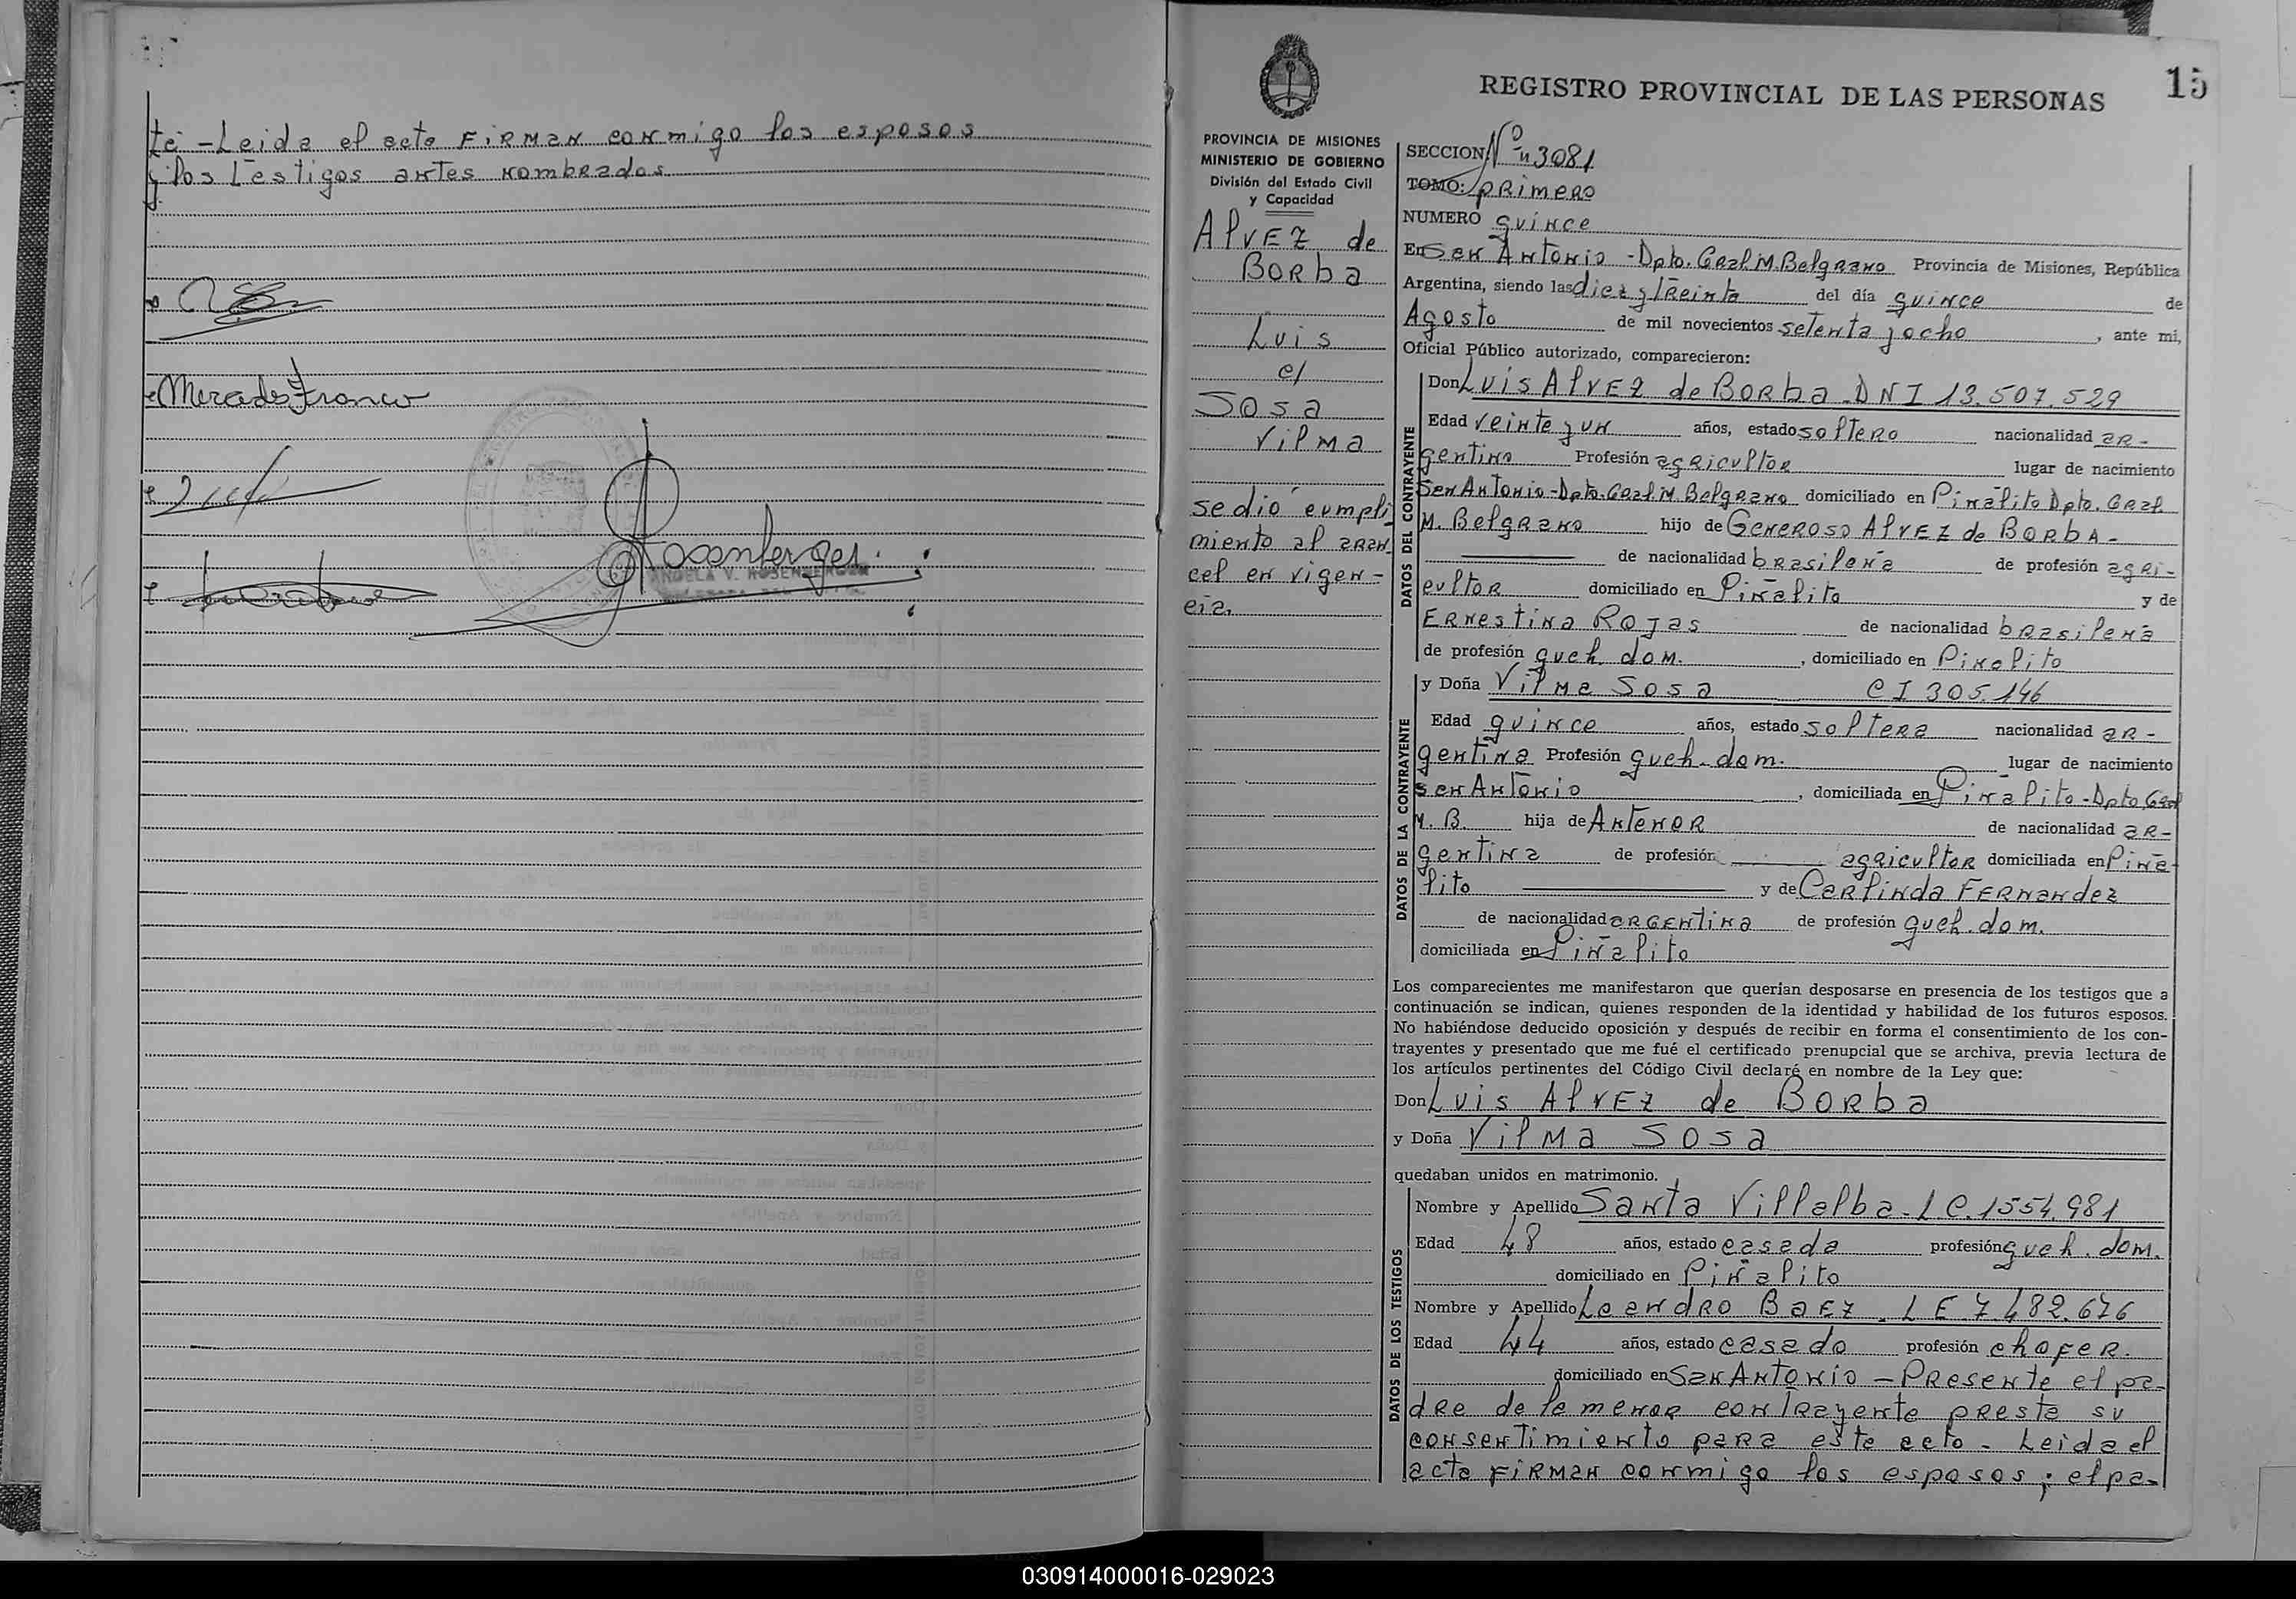 te - Leida el acta firman conmigo los esposos
y los testigos antes nombrados
Mercedes Franco
Rosenberger
ANGELA V. ROSENBERGER
15
REGISTRO PROVINCIAL DE LAS PERSONAS
PROVINCIA DE MISIONES
MINISTERIO DE GOBIERNO
División del Estado Civil
y Capacidad
Alvez de
Borba
Luis
c/
Sosa
Vilma
se dió cumpli
miento al aran
cel en vigen-
cia.
SECCION: Nº 3081
TOMO: primero
NUMERO quince
En San Antonio - Dpto. Gral M. Belgrano Provincia de Misiones, República
Argentina, siendo las diez y treinta del día quince de
Agosto de mil novecientos setenta y ocho, ante mi,
Oficial Público autorizado, comparecieron:
DATOS DEL CONTRAYENTE
Don Luis Alvez de Borba DNI 13.507.529
Edad veinte y un años, estado soltero nacionalidad ar-
gentino Profesión agricultor lugar de nacimiento
San Antonio - Dpto. Gral M. Belgrano domiciliado en Piñalito Dpto. Gral
M. Belgrano hijo de Generoso Alvez de Borba -
de nacionalidad brasileña de profesión agri-
cultor domiciliado en Piñalito y de
Ernestina Rojas de nacionalidad brasileña
de profesión queh. dom. , domiciliado en Piñalito
DATOS DE LA CONTRAYENTE
y Doña Vilma Sosa CI 305.146
Edad quince años, estado soltera nacionalidad ar-
gentina Profesión queh. dom. lugar de nacimiento
San Antonio , domiciliada en Piñalito - Dpto. Gral
M. B. hija de Antenor de nacionalidad ar-
gentina de profesión agricultor domiciliada en Piña-
lito y de Carlinda Fernandez
de nacionalidad argentina de profesión queh. dom.
domiciliada en Piñalito
Los comparecientes me manifestaron que querían desposarse en presencia de los testigos que a
continuación se indican, quienes responden de la identidad y habilidad de los futuros esposos.
No habiéndose deducido oposición y después de recibir en forma el consentimiento de los con-
trayentes y presentado que me fué el certificado prenupcial que se archiva, previa lectura de
los artículos pertinentes del Código Civil declaré en nombre de la Ley que:
Don Luis Alvez de Borba
y Doña Vilma Sosa
quedaban unidos en matrimonio.
DATOS DE LOS TESTIGOS
Nombre y Apellido Santa Villalba - LC. 1554.981
Edad 48 años, estado casada profesión queh. dom.
domiciliado en Piñalito
Nombre y Apellido Leandro Baez - LE 7.482.676
Edad 44 años, estado casado profesión chofer.
domiciliado en San Antonio - Presente el pa-
dre de la menor contrayente presta su
consentimiento para este acto - Leida el
acta firman conmigo los esposos; el pa-
030914000016-029023